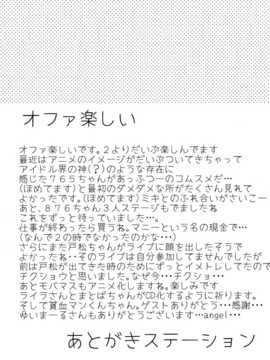 オファ楽しい
オファ楽しいです。２よりだいぶ楽しんでます
最近はアニメのイメージがだいぶついてきちゃって
アイドル界の神（？）のような存在に
感じた７６５ちゃんがあっふつーのコムスメだ…
（ほめてます）と最初のダメダメな所がたくさん見れて
よかったです。（ほめてます）ミキとのふれ合いがさいこー
あと、８７６ちゃん３人ステージもでましたね
これをずっと待っていました…。
仕事が終わったら買うね。マニーという名の現金で…
（なんで２の時でなかったのか…）
さらにまた戸松ちゃんがライブに顔を出したそうで
よかったね…そのライブは自分参加してませんでしたが
前は戸松が出てきた時のためにずっとイメトレしてたので
チクショウと思いました。なぜ今…チクショ…
あとモバマスもアニメ化しますね。楽しみです
ライラさんとまとばちゃんがCD化するように祈ります。
そして貧血マンくんちゃん。ゲストありがとう…感謝…
ゆいまーるさんもありがとうございます…angel…
あとがきステーション